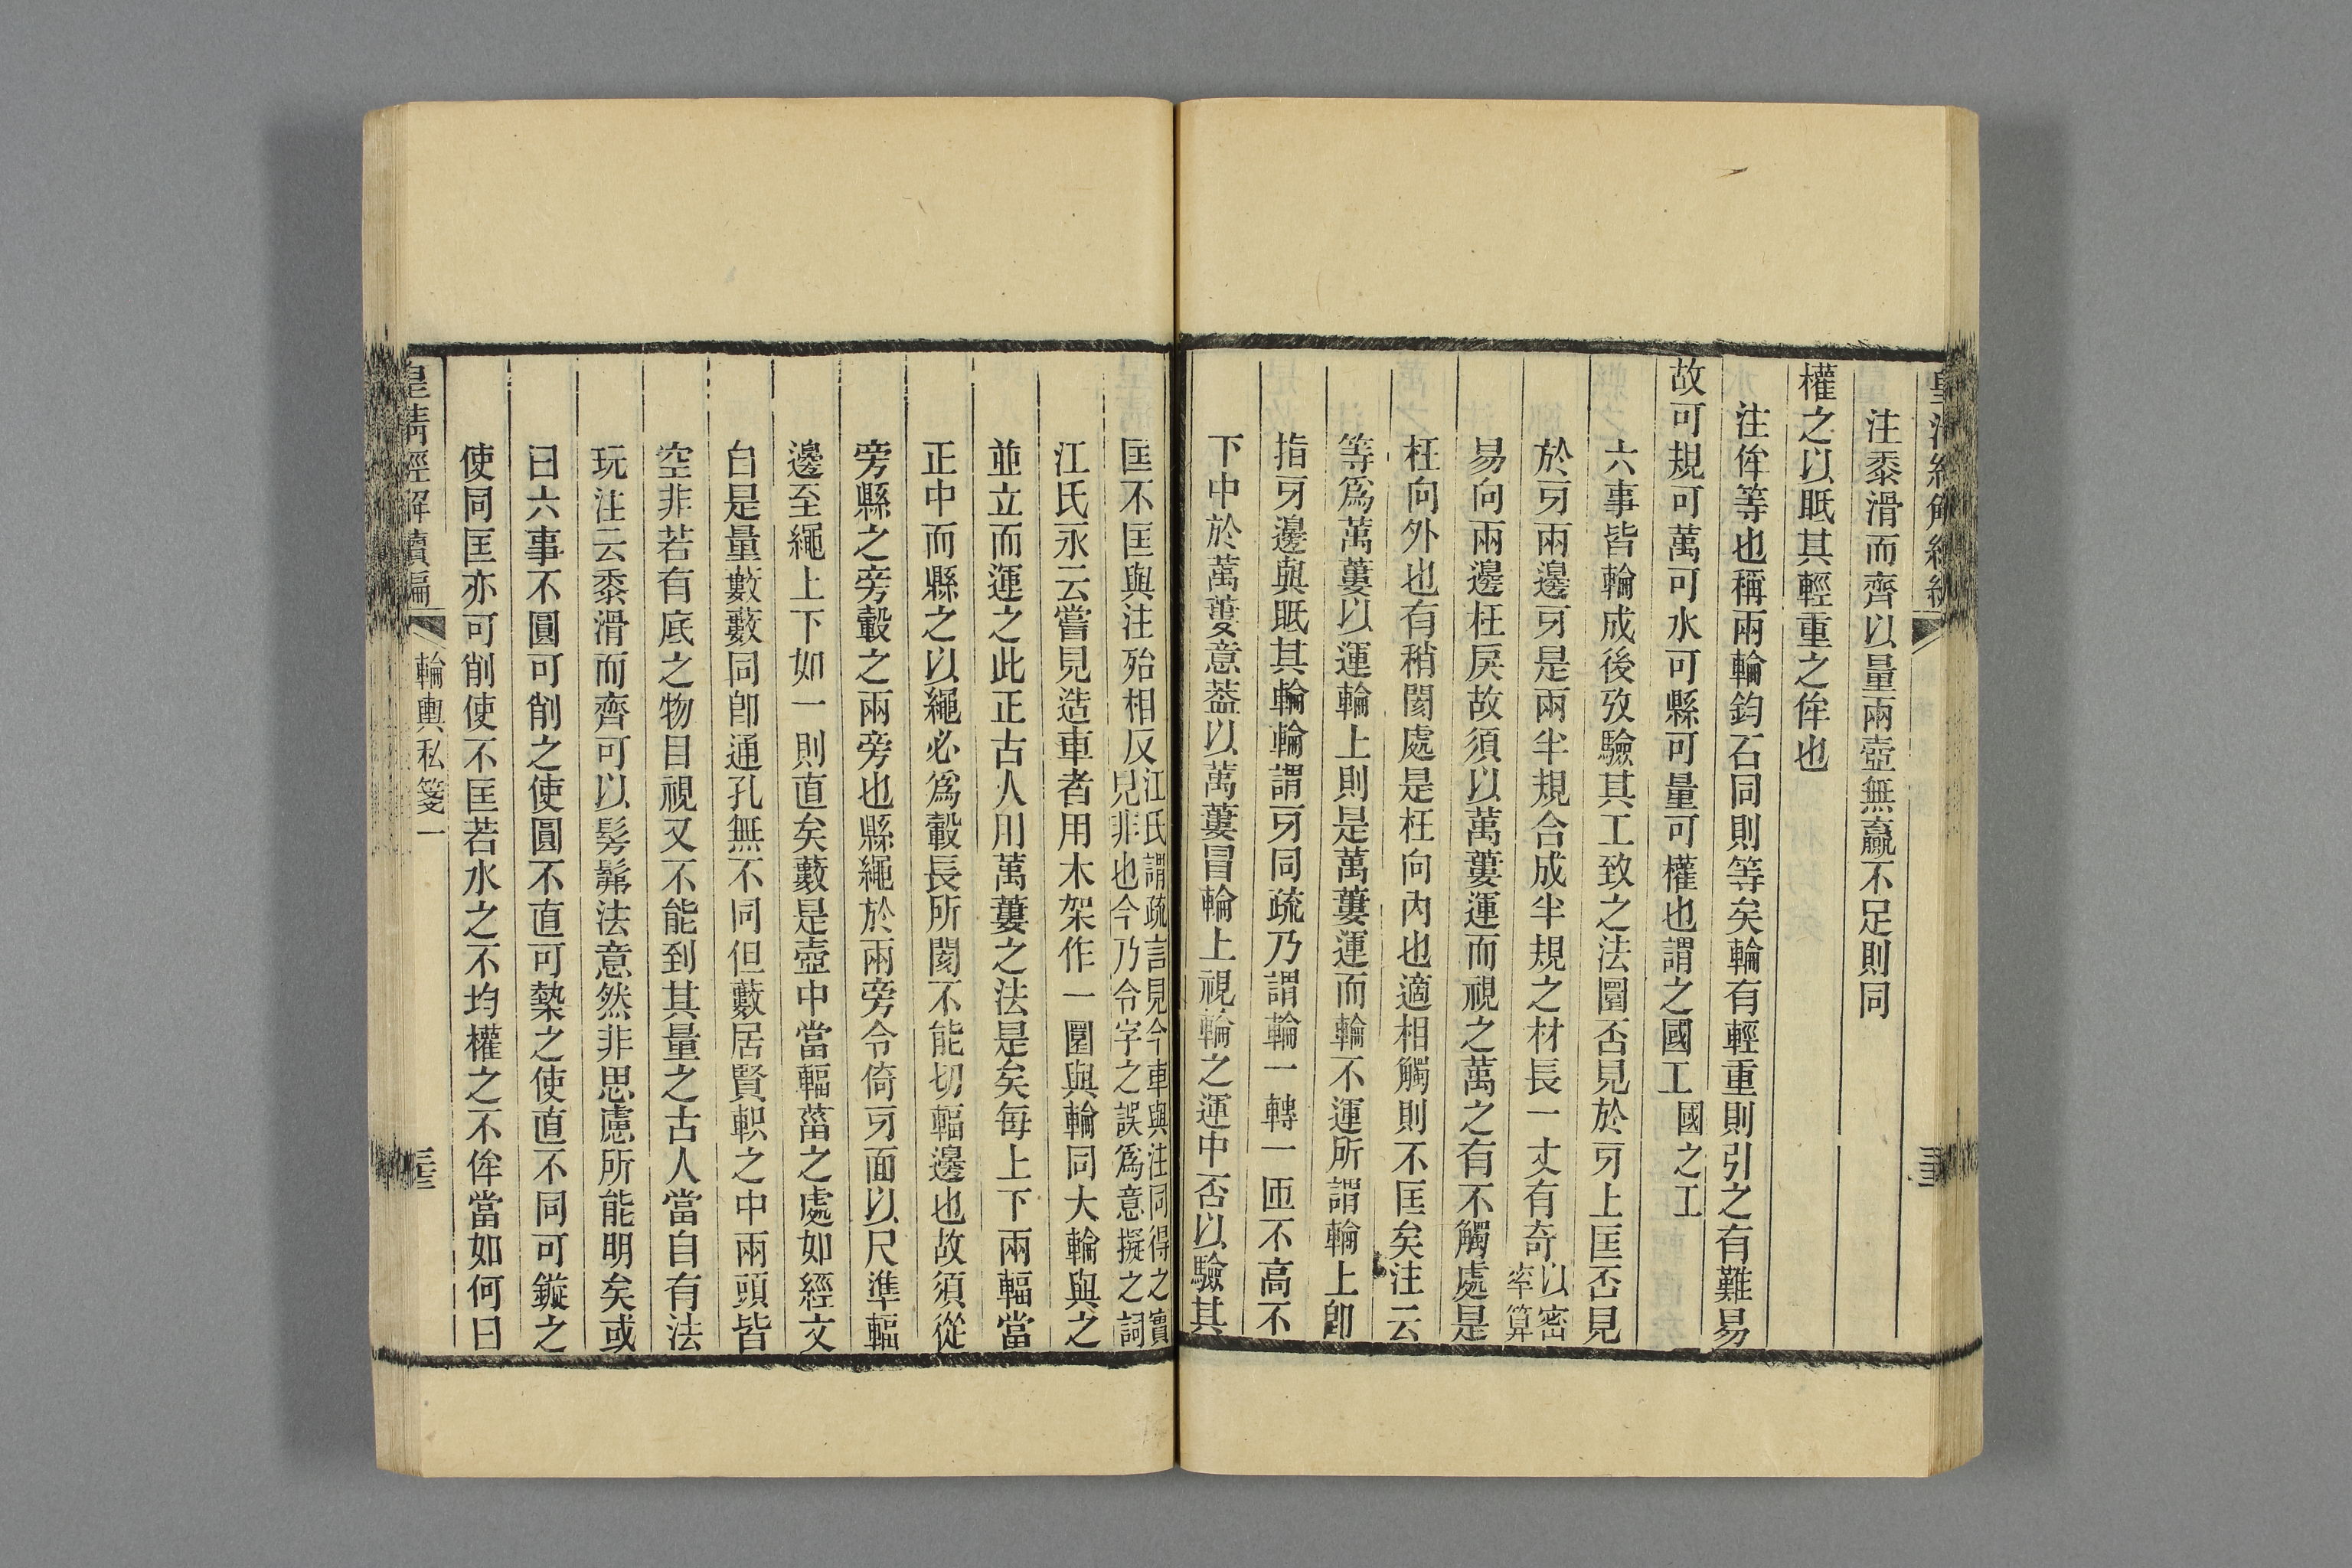 注黍滑而齊以量兩壺無贏不足則同
權之以眡其輕重之侔也
注侔等也稱兩輪鈞石同則等矣輪有輕重則引之有難易
故可規可萬可水可縣可量可權也謂之國工國之工
六事皆輪成後攷驗其工致之法圜否見於可上匡否見
於牙兩邊牙是兩半規合成半規之材長一丈有奇以密率算
易向兩邊枉戾故須以萬蔞運而視之萬之有不觸處是
枉向外也有稍閡處是枉向內也適相觸則不匡矣注云
等爲萬蔞以運輪上則是萬蔞運而輪不運所謂輪上卽
指牙邊與眡其輪輪謂牙同疏乃謂輪一轉一匝不高不
下中於萬蔞意葢以萬蔞冒輪上視輪之運中否以驗其
匡不匡與注殆相反江氏謂疏言見今車與注同得之實兒非也今乃令字之誤爲意擬之詞
江氏永云嘗見造車者用木架作一圜與輪同大輪與之
並立而運之此正古人用萬蔞之法是矣每上下兩輻當
正中而縣之以繩必爲轂長所閡不能切輻邊也故須從
旁縣之旁轂之兩旁也縣繩於兩旁令倚牙面以尺準輻
邊至繩上下如一則直矣藪是壺中當輻菑之處如經文
白是量藪藪同卽通孔無不同但藪居賢軹之中兩頭皆
空非若有底之物目視又不能到其量之古人當自有法
玩注云黍滑而齊可以髣髴法意然非思慮所能明矣或
曰六事不圓可削之使圓不直可槷之使直不同可鏇之
使同匡亦可削使不匡若水之不均權之不侔當如何曰
皇清經解續編 輪輿私箋一